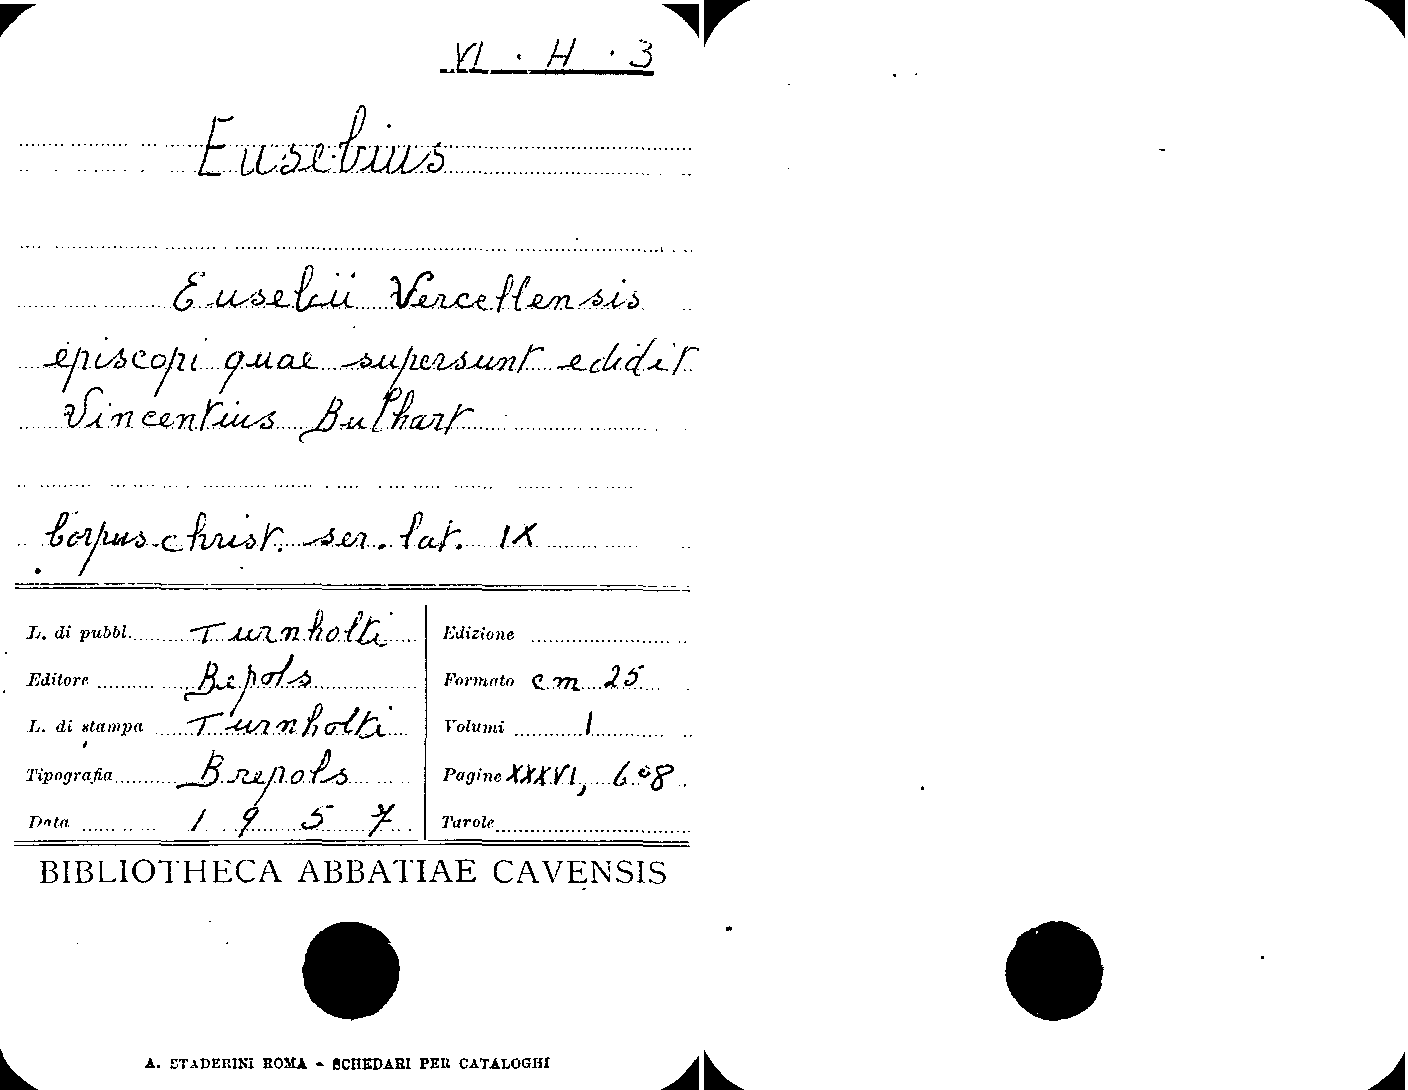 VI · H · 3
Eusebius
Eusebii Vercellensis
episcopi quae supersunt edidit
Vincentius Bulhart
Corpus christ. ser. lat. IX
L. di pubbl. Turnholti
Editore Bepols
L. di stampa Turnholti
Tipografia Brepols
Data 1957
Edizione
Formato cm 25
Volumi 1
Pagine XXXVI, 608
Tavole
BIBLIOTHECA ABBATIAE CAVENSIS
A. STADERINI ROMA - SCHEDARI PER CATALOGHI